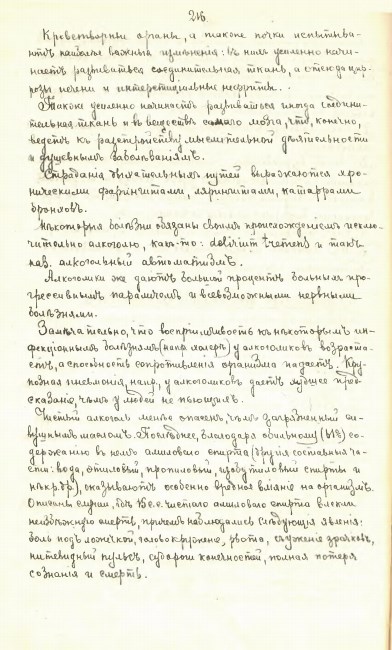 216
Кроветворные органы, а также почки испытыва-
ютъ наиболѣе важныя измѣненія: въ нихъ усиленно начи-
наетъ развиваться соединительная ткань, а отсюда цир-
розы печени и интерстиціальные нефриты.
Также усиленно начинаетъ развиваться иногда соедини-
тельная ткань и въ веществѣ самаго мозга, что, конечно,
ведетъ къ разстройству мыслительной дѣятельности
и душевнымъ заболѣваніямъ.
Страданія дыхательныхъ путей выражаются хро-
ническими фарингитами, ларингитами, катаррами
бронховъ.
Нѣкоторыя болѣзни обязаны своимъ происхожденіемъ исклю-
чительно алкоголю, какъ-то: delirium tremens и такъ
наз. алкогольный автоматизмъ.
Алкоголики же даютъ большой процентъ больныхъ про-
грессивнымъ параличомъ и всевозможными нервными
болѣзнями.
Замѣчательно, что воспріимчивость къ нѣкоторымъ ин-
фекціоннымъ болѣзнямъ (напр. холера) у алкоголиковъ возраста-
етъ, а способность сопротивленія организма падаетъ. Кру-
позная пневмонія, напр., у алкоголиковъ даетъ худшее пред-
сказаніе, чѣмъ у людей не пьющихъ.
Чистый алкоголь менѣе опасенъ, чѣмъ загрязненный си-
вушнымъ масломъ. Послѣднее, благодаря обильному со-
держанію въ немъ амиловаго спирта (другія составныя ча-
сти: вода, этиловый, пропиловый, изобутиловый спирты и
нѣкр. др.), оказываютъ особенно вредное вліяніе на организмъ.
Описаны случаи, гдѣ к.с. чистаго амиловаго спирта влекли
неизбѣжную смерть, причемъ наблюдались слѣдующія явленія:
боль подъ ложечкой, головокруженіе, рвота, суженіе зрачковъ,
нитевидный пульсъ, судороги конечностей, полная потеря
сознанія и смерть.